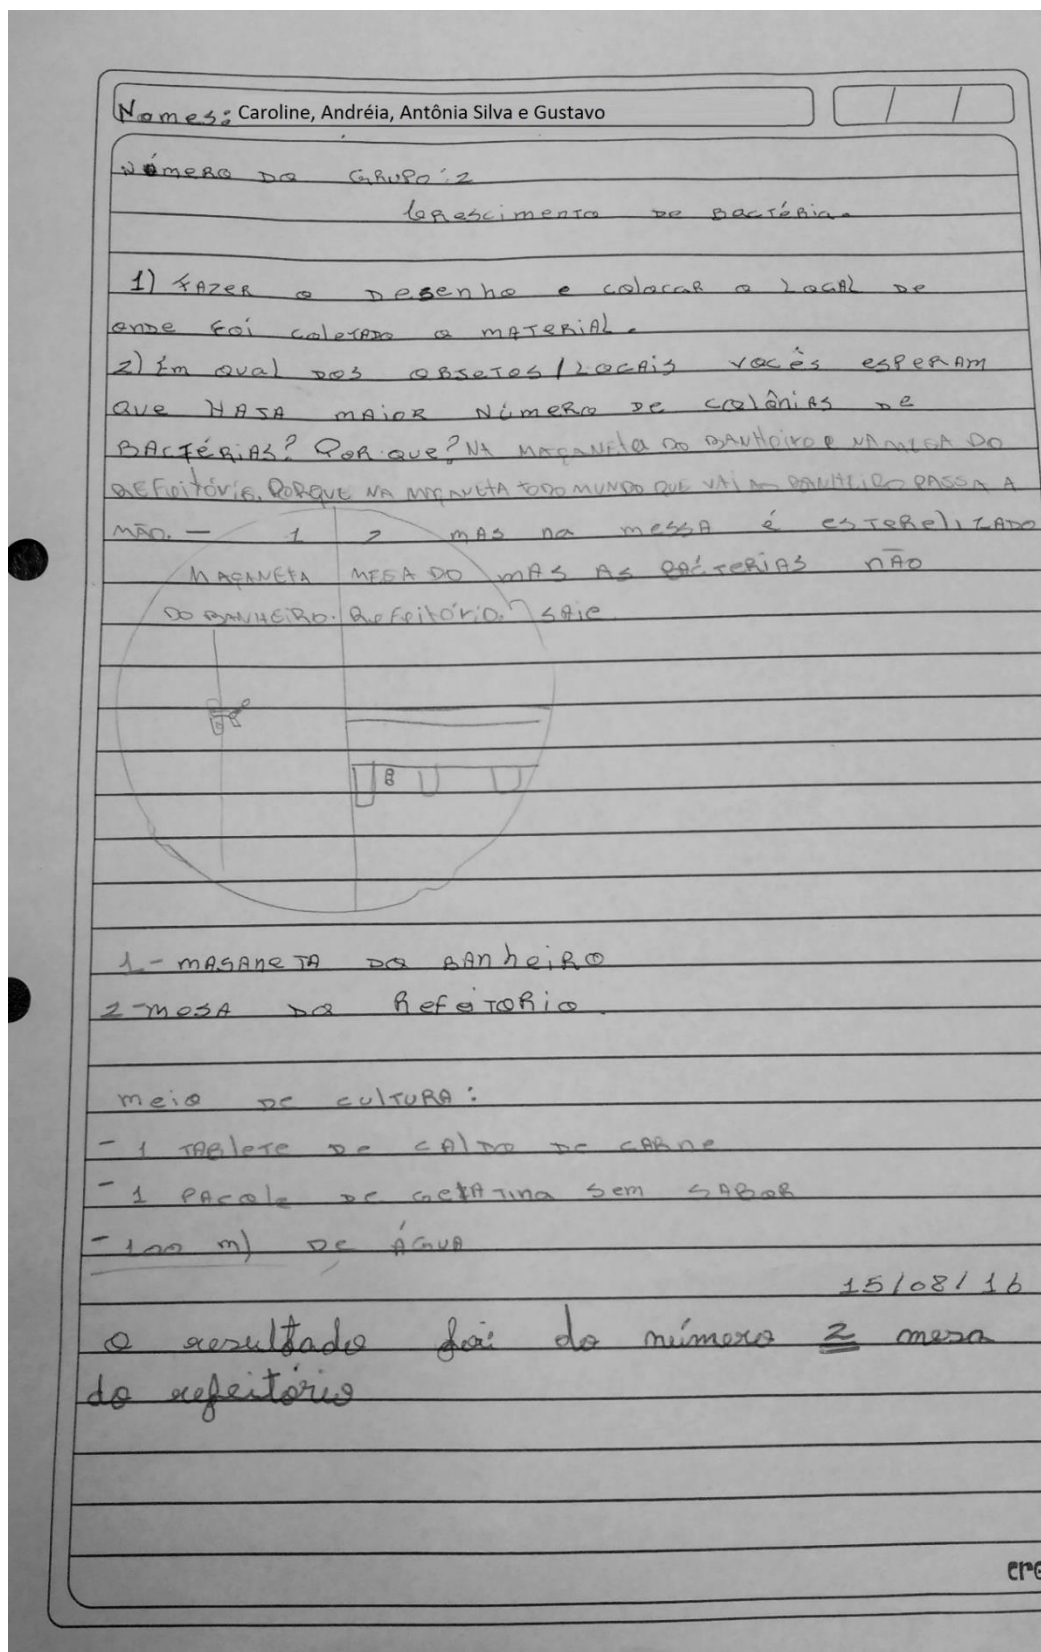 Nomes: Caroline, Andréia, Antônia Silva e Gustavo
Número do Grupo: 2
Crescimento de Bactéria.
1) Fazer o desenho e colocar o local de
onde foi coletado o material.
2) Em qual dos obsetos/locais vocês esperam
que hasa maior número de colônias de
bactérias? Por que? NA MAÇANETA DO BANHEIRO E NA MESA DO
REFEITÓRIO. PORQUE NA MAÇANETA TODO MUNDO QUE VAI AO BANHEIRO PASSA A
MÃO. — 1 2 mas na messa é esterelizado
MAÇANETA MESA DO mas as bactérias não
DO BANHEIRO. Refeitório. saie
1 - masaneta do banheiro
2 - mesa do Refetorio.
meio de cultura:
- 1 tablete de caldo de carne
- 1 pacote de gelatina sem sabor
- 100 ml de água
15/08/16
o resultado foi do número 2 mesa
do refeitório